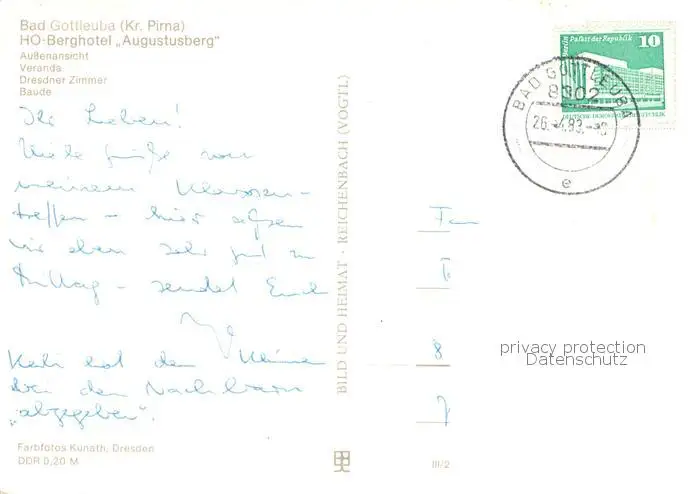 Bad Gottleuba (Kr. Pirna)
HO-Berghotel „Augustusberg“
Außenansicht
Veranda
Dresdner Zimmer
Baude
Ihr Lieben!
Viele Grüße von
meinem Klassen-
treffen – hier essen
wir eben sehr gut zu
Mittag – sendet Euch
Kati hat den Kleinen
bei den Nachbarn
„abgegeben“.
Farbfotos Kunath, Dresden
DDR 0,20 M
BILD UND HEIMAT · REICHENBACH (VOGTL.)
III/2
Fam
8
Berlin Palast der Republik 10
DEUTSCHE DEMOKRATISCHE REPUBLIK
BAD GOTTLEUBA
8302
e
privacy protection
Datenschutz